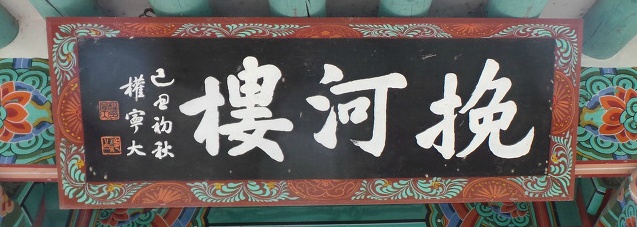 挽河樓
己丑初秋
權寧大